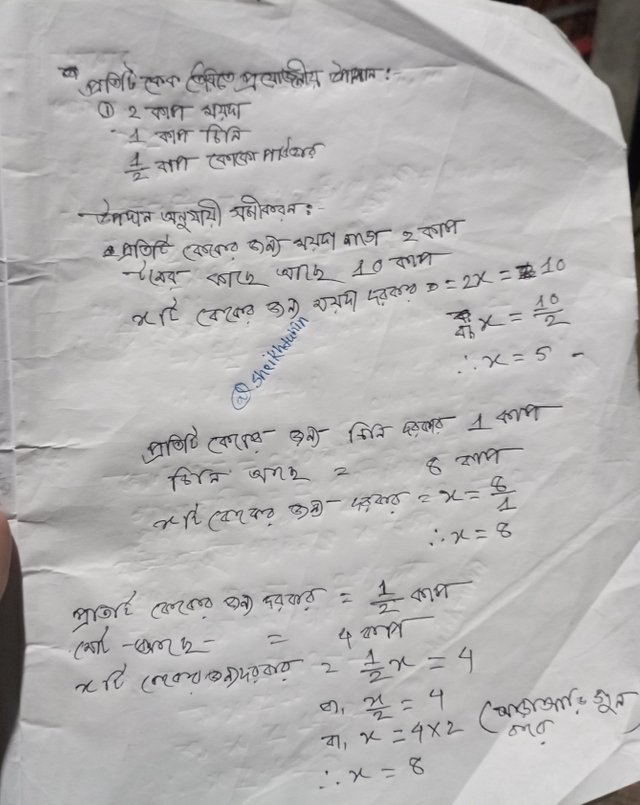 প্রতিটি কেক তৈরিতে প্রয়োজনীয় উপাদান :-
① 2 কাপ ময়দা
1 কাপ চিনি
1/2 কাপ কোকো পাউডার
উপাদান অনুযায়ী সমীকরন :-
প্রতিটি কেকের জন্য ময়দা লাগে 2 কাপ
কাছে আছে 10 কাপ
x টি কেকের জন্য ময়দা দরকার = 2x = 10
বা x = 10/2
∴ x = 5
@Sheikhtuhin
প্রতিটি কেকের জন্য চিনি দরকার 1 কাপ
চিনি আছে = 8 কাপ
x টি কেকের জন্য দরকার = x = 8/1
∴ x = 8
প্রতিটি কেকের জন্য দরকার = 1/2 কাপ
মোট আছে = 4 কাপ
x টি কেকের জন্য দরকার = 1/2 x = 4
বা, x/2 = 4
বা, x = 4×2 (আড়াআড়ি গুন করে
∴ x = 8